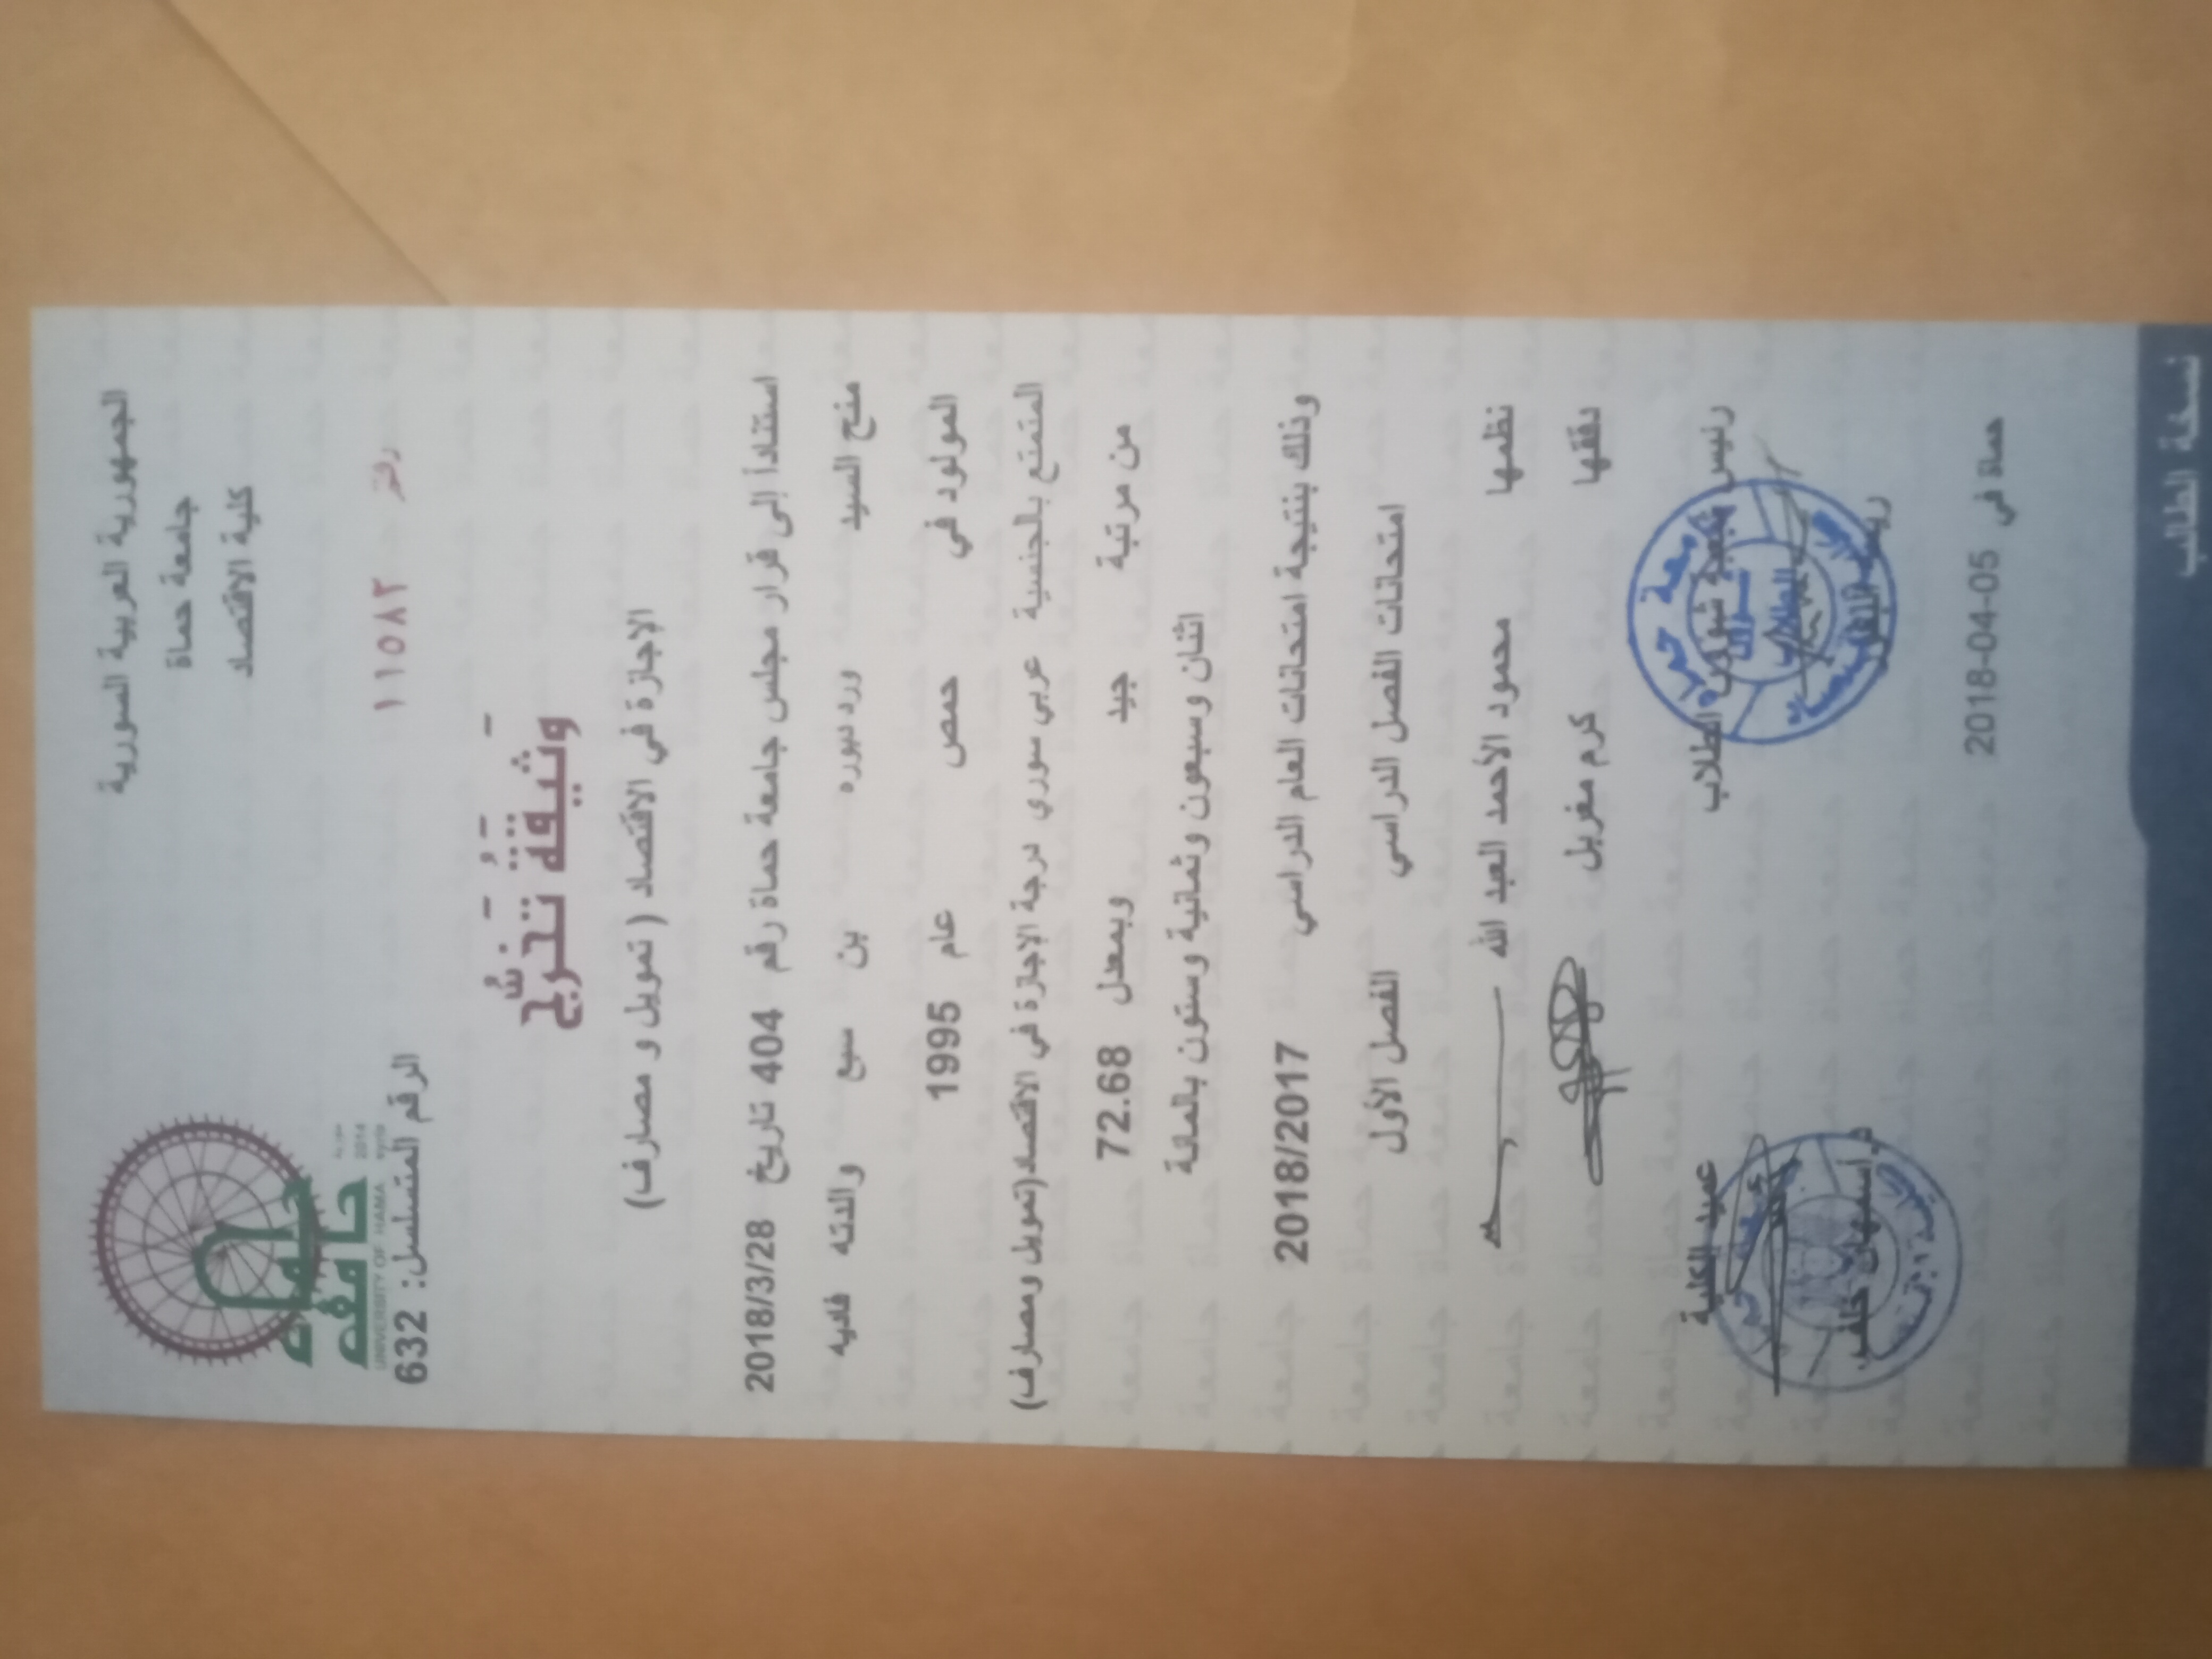 الجمهورية العربية السورية
جامعة حماة
كلية الاقتصاد
جامعة حماة
UNIVERSITY OF HAMA
2014
رقم ١١٥٨٢
الرقم المتسلسل: 632
وَثيقَةُ تَخَرُّج
الإجازة في الاقتصاد ( تمويل و مصارف)
استناداً إلى قرار مجلس جامعة حماة رقم 404 تاريخ 2018/3/28
منح السيد بن سبع والدته فاديه
المولود في حمص عام 1995
المتمتع بالجنسية عربي سوري درجة الإجازة في الاقتصاد(تمويل ومصارف)
من مرتبة جيد وبمعدل 72.68
اثنان وسبعون وثمانية وستون بالمائة
وذلك بنتيجة امتحانات العام الدراسي 2018/2017
امتحانات الفصل الدراسي الفصل الأول
نظمها محمود الأحمد العبد الله
دققها كرم مغربل
رئيس شؤون الطلاب
عميد الكلية
حماة في 2018-04-05
نسخة الطالب